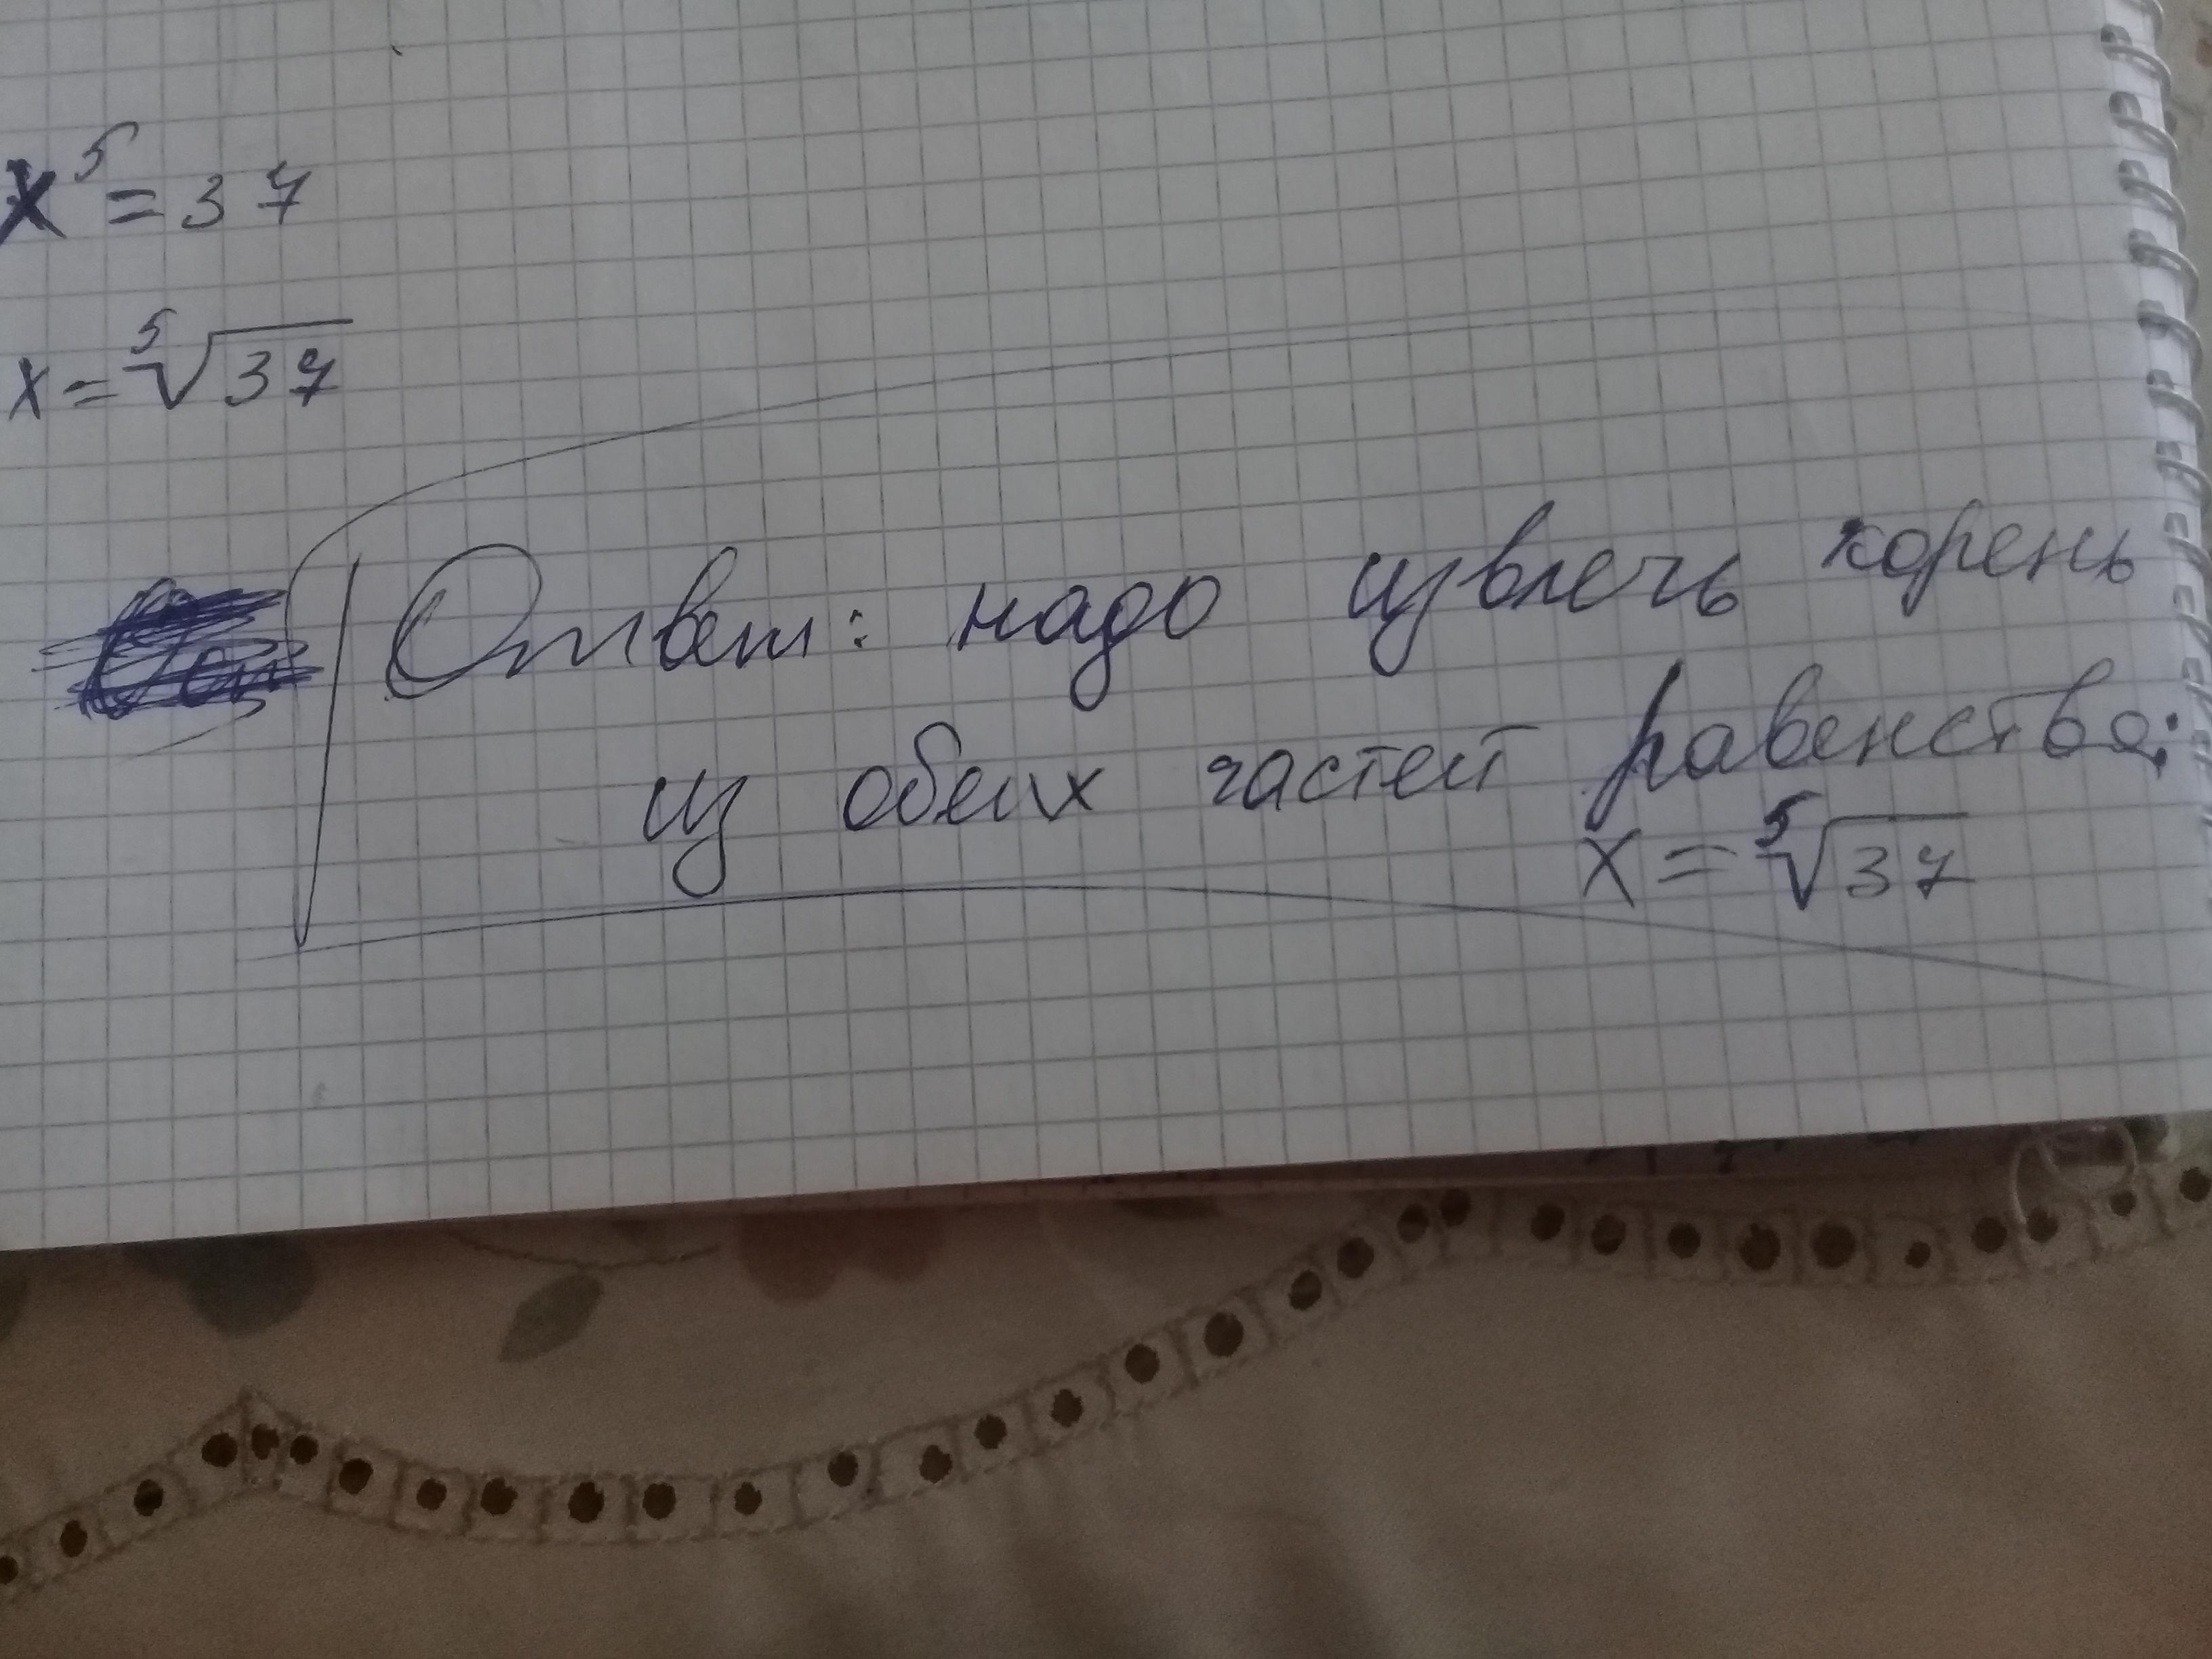 x⁵ = 37
x = ⁵√37
Ответ: надо извлечь корень
из обеих частей равенства:
x = ⁵√37